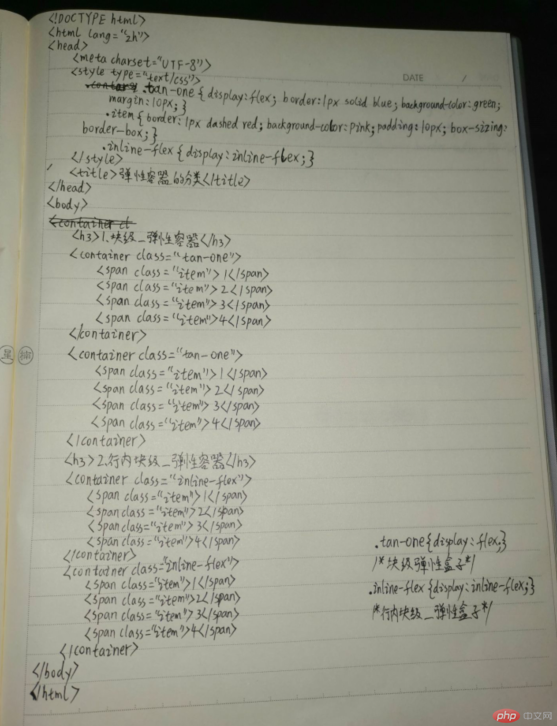 <!DOCTYPE html>
<html lang="zh">
<head>
<meta charset="UTF-8">
<style type="text/css">
DATE /
.tan-one{display:flex; border:1px solid blue; background-color:green;
margin:10px;}
.item{border:1px dashed red; background-color:pink; padding:10px; box-sizing:
border-box;}
.inline-flex{display:inline-flex;}
</style>
<title>弹性容器的分类</title>
</head>
<body>
<container cl
<h3>1.块级_弹性容器</h3>
<container class="tan-one">
<span class="item">1</span>
<span class="item">2</span>
<span class="item">3</span>
<span class="item">4</span>
</container>
<container class="tan-one">
<span class="item">1</span>
<span class="item">2</span>
<span class="item">3</span>
<span class="item">4</span>
</container>
<h3>2.行内块级_弹性容器</h3>
<container class="inline-flex">
<span class="item">1</span>
<span class="item">2</span>
<span class="item">3</span>
<span class="item">4</span>
</container>
<container class="inline-flex">
<span class="item">1</span>
<span class="item">2</span>
<span class="item">3</span>
<span class="item">4</span>
</container>
</body>
</html>
.tan-one{display:flex;}
/*块级弹性盒子*/
.inline-flex{display:inline-flex;}
/*行内块级_弹性盒子*/
php 中文网